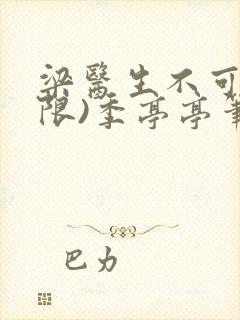 梁醫生不可
限)季亭亭筆
巴力